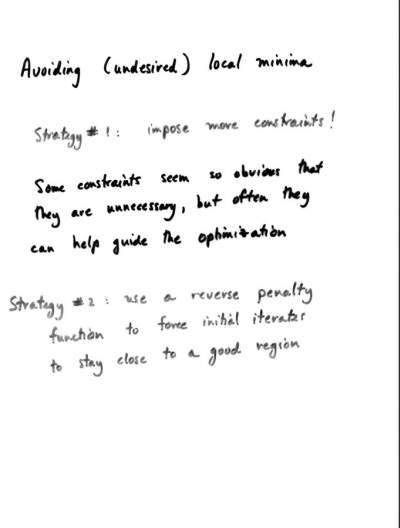 Avoiding (undesired) local minima
Strategy #1: impose more constraints!
Some constraints seem so obvious that
they are unnecessary, but often they
can help guide the optimization
Strategy #2: use a reverse penalty
function to force initial iterates
to stay close to a good region